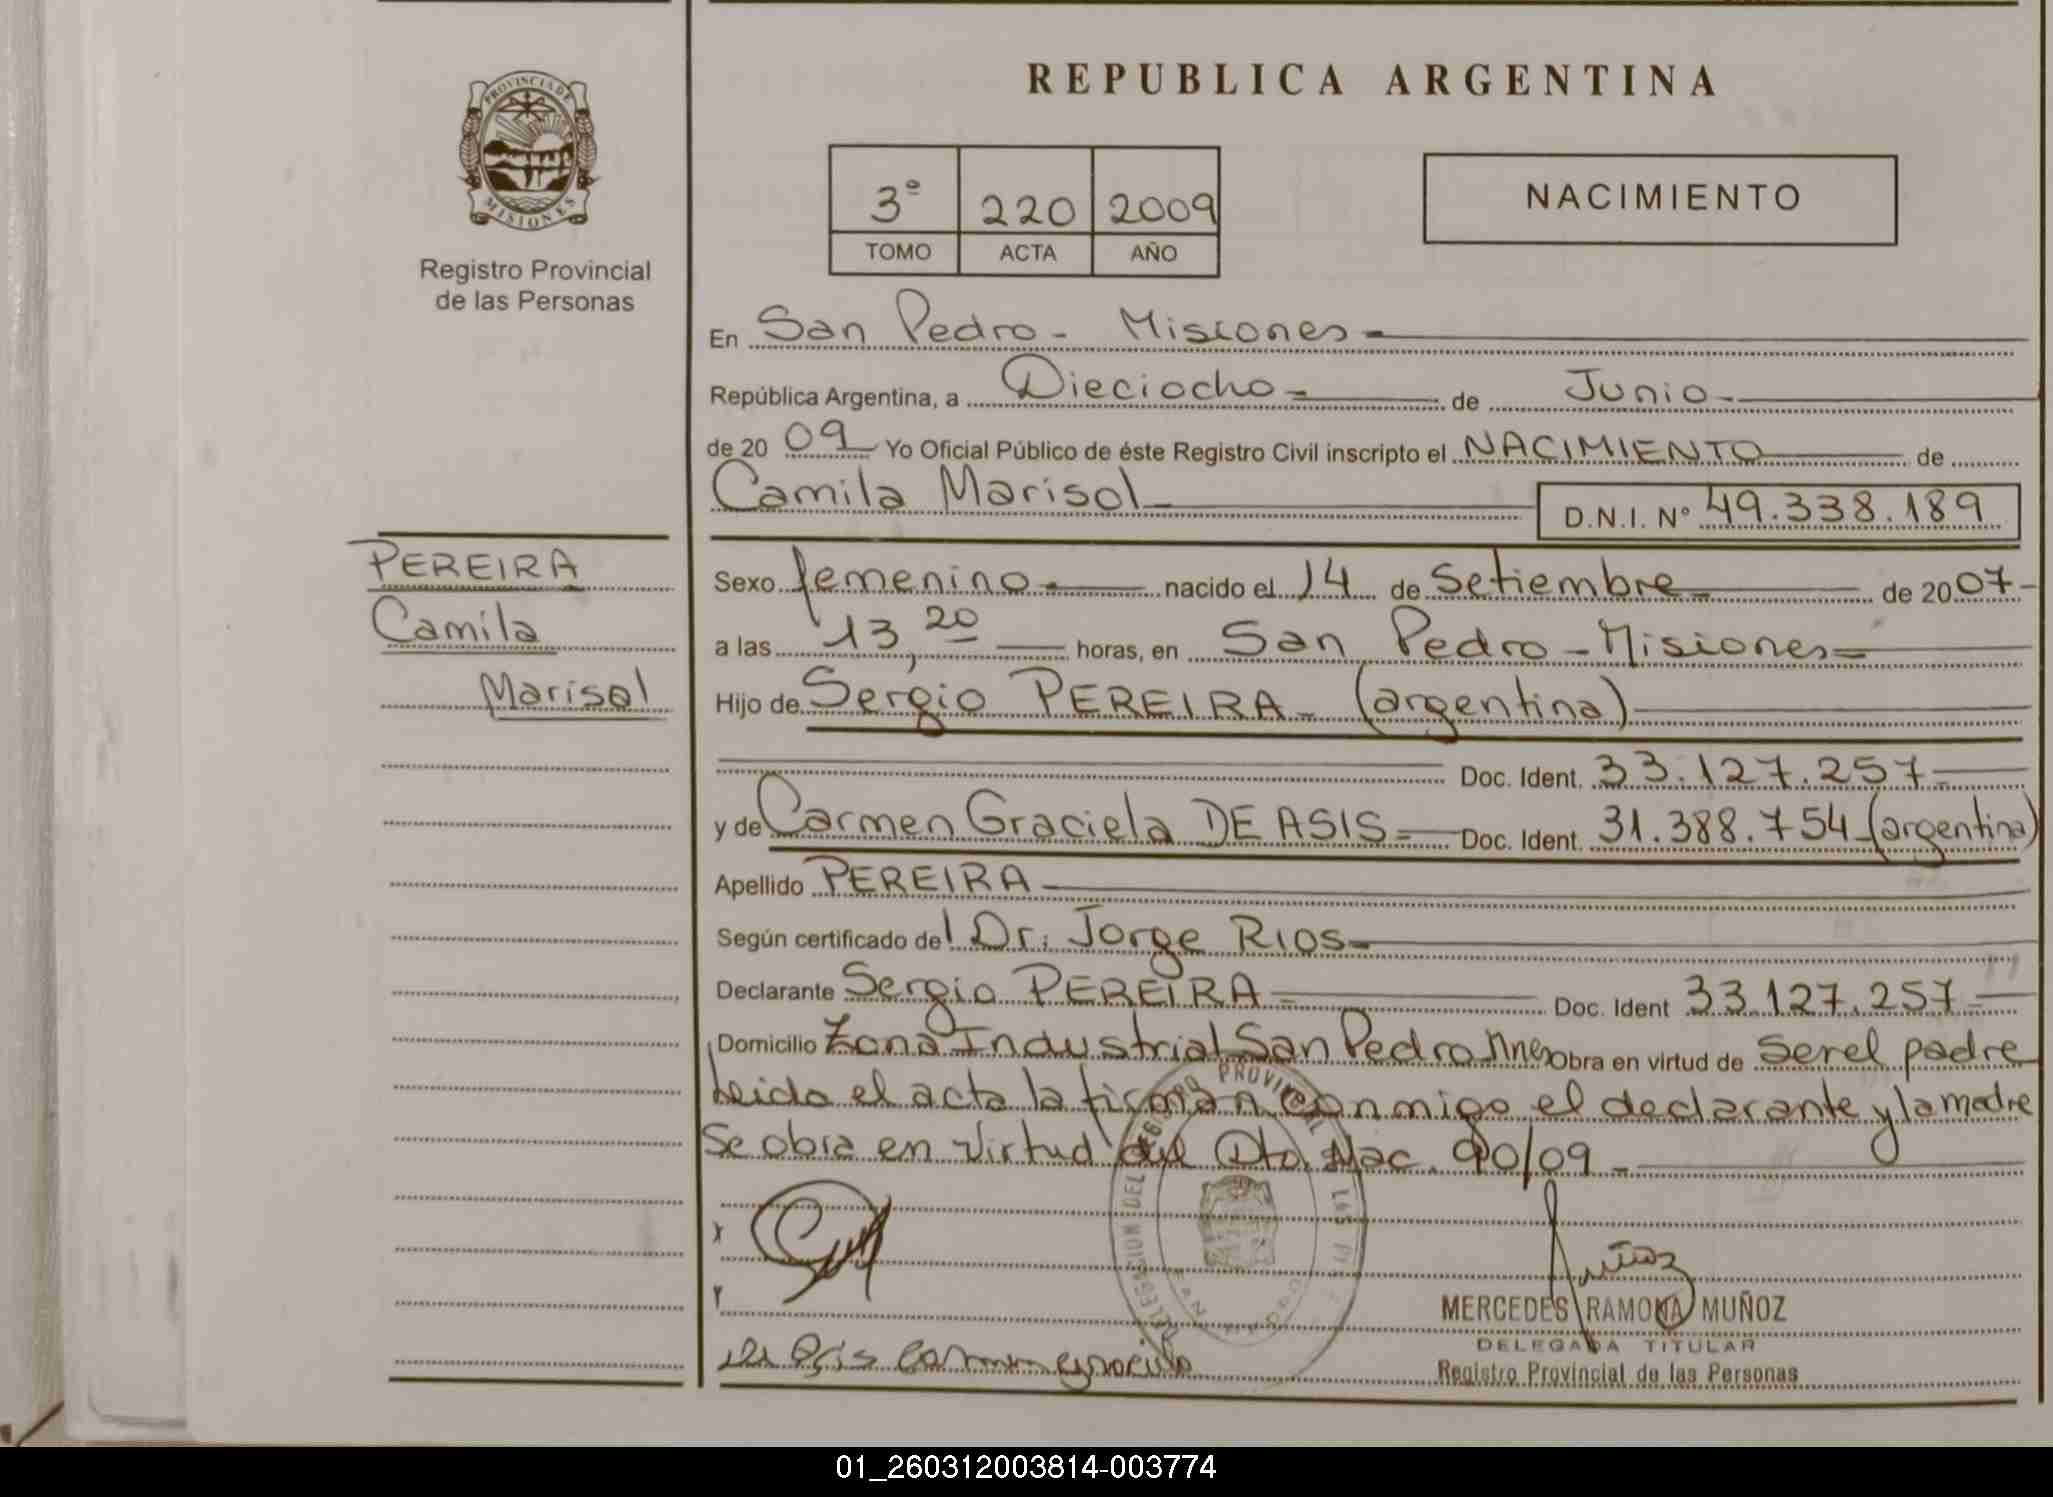 PROVINCIA DE
MISIONES
Registro Provincial
de las Personas
REPUBLICA ARGENTINA
3º 220 2009
TOMO ACTA AÑO
NACIMIENTO
En San Pedro - Misiones
República Argentina, a Dieciocho de Junio
de 20 09 Yo Oficial Público de éste Registro Civil inscripto el NACIMIENTO de
Camila Marisol
D.N.I. Nº 49.338.189
PEREIRA
Camila
Marisol
Sexo femenino nacido el 14 de Setiembre de 2007
a las 13,20 horas, en San Pedro - Misiones
Hijo de Sergio PEREIRA - (argentina)
Doc. Ident. 33.127.257
y de Carmen Graciela DE ASIS Doc. Ident. 31.388.754 (argentina)
Apellido PEREIRA
Según certificado del Dr. Jorge RIOS
Declarante Sergio PEREIRA Doc. Ident 33.127.257
Domicilio Zona Industrial San Pedro Mnes Obra en virtud de ser el padre
Leida el acta la firman conmigo el declarante y la madre
Se obra en virtud del Dto. Nac. 90/09
DELEGACION DEL REGISTRO PROVINCIAL
MERCEDES RAMONA MUÑOZ
DELEGADA TITULAR
Registro Provincial de las Personas
01_260312003814-003774